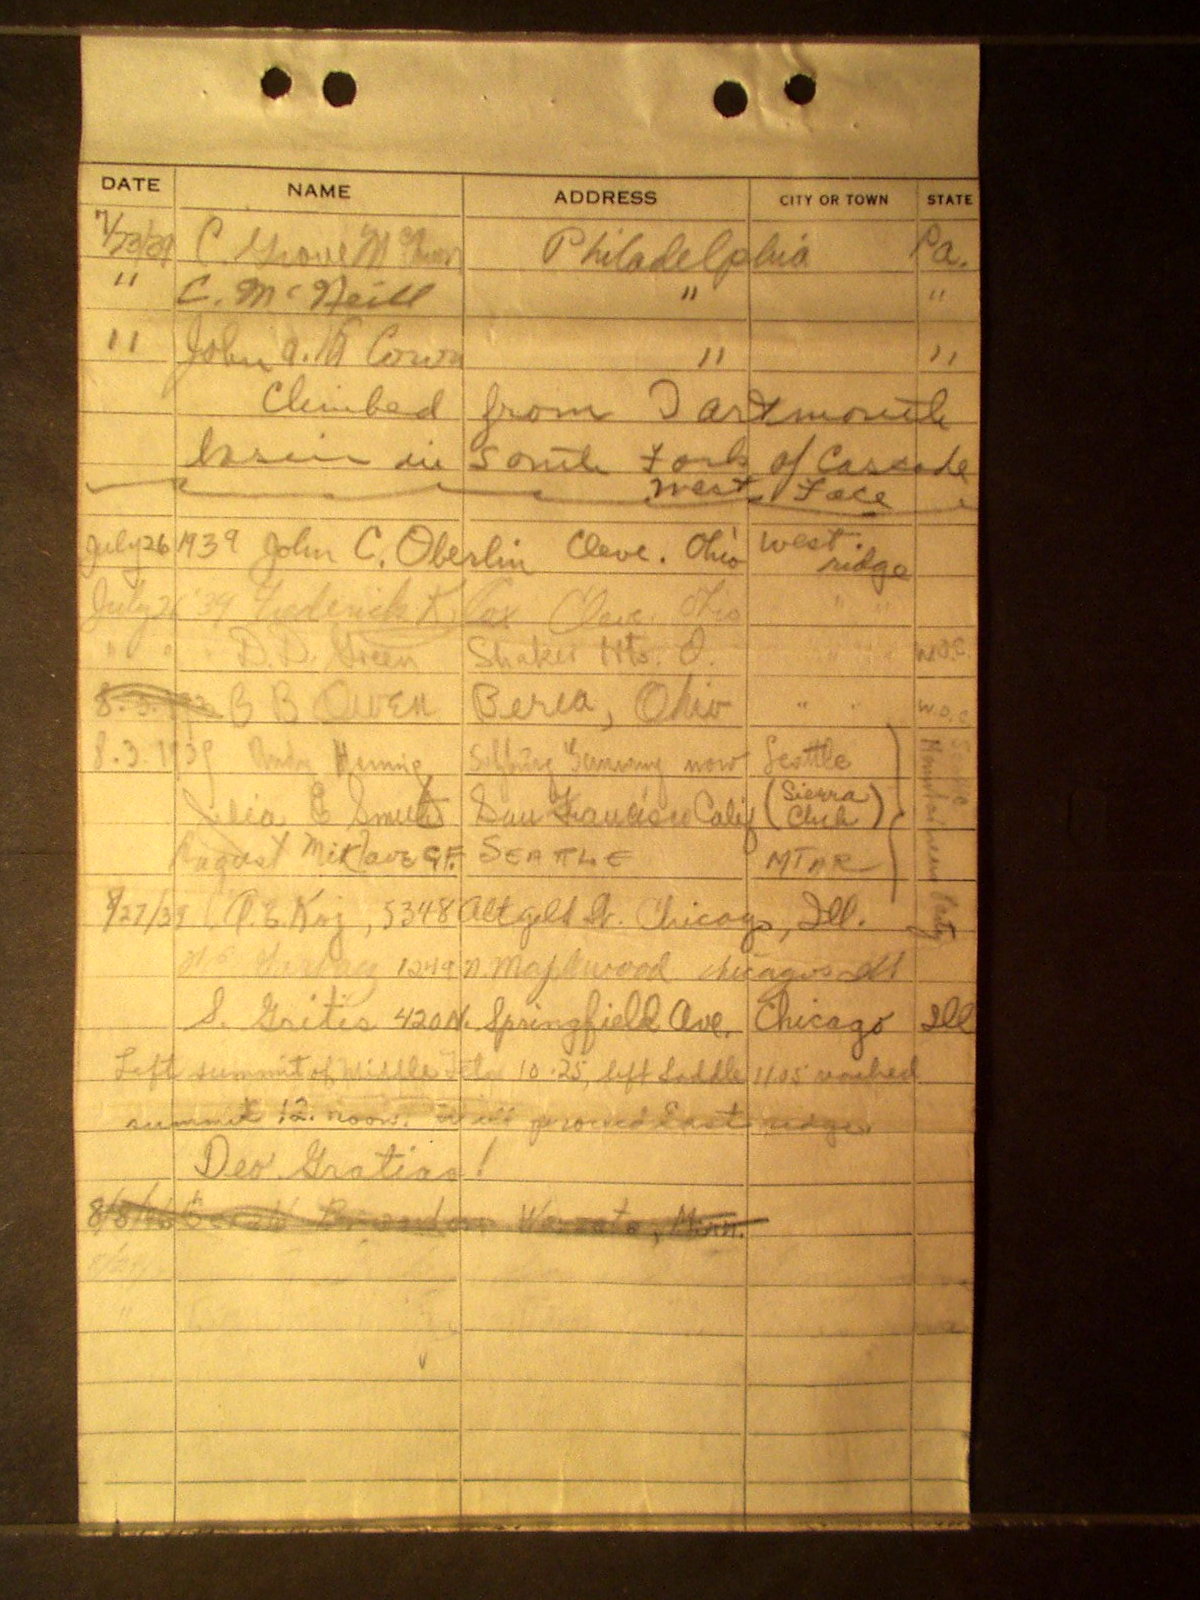 DATE NAME ADDRESS CITY OR TOWN STATE
7/23/39 C. Grove McCown Philadelphia Pa.
" C. McNeill " "
" John A. McCown " "
Climbed from Dartmouth
basin in South Fork of Cascade
West Face
July 26 1939 John C. Oberlin Cleve. Ohio West ridge
July 26 '39 Frederick K. Cox Cleve. Ohio " "
" " D.D. Green Shaker Hts. O. " " W.O.C.
8.3. B B Owen Berea, Ohio " " W.O.C.
8.3.1939 Hennig Germany now Seattle
Julia E Smith San Francisco Calif (Sierra Club)
August SEATTLE MTNR
Seattle Mountaineers Party
8/27/39 5348 Altgeld St. Chicago, Ill.
1249 N Maplewood Chicago Ill
S. Gritis 420 N. Springfield Ave. Chicago Ill
Left summit of Middle Teton 10:25, left Saddle 11:05 reached
summit 12. noon. Will proceed East ridge.
Deo Gratias!
8/8/46 Wayzata, Minn.